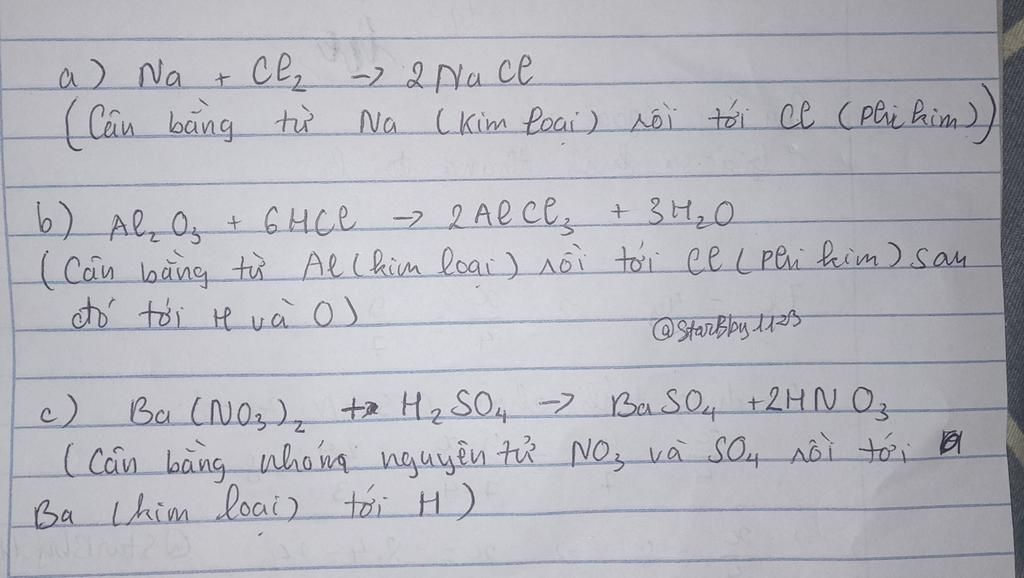 a) Na + Cl₂ → 2NaCl
(Cân bằng từ Na (kim loại) rồi tới Cl (phi kim))
b) Al₂O₃ + 6HCl → 2AlCl₃ + 3H₂O
(Cân bằng từ Al (kim loại) rồi tới Cl (phi kim) sau
đó tới H và O)
@StarBby1123
c) Ba(NO₃)₂ + H₂SO₄ → BaSO₄ + 2HNO₃
(Cân bằng nhóm nguyên tử NO₃ và SO₄ rồi tới
Ba (kim loại) tới H)